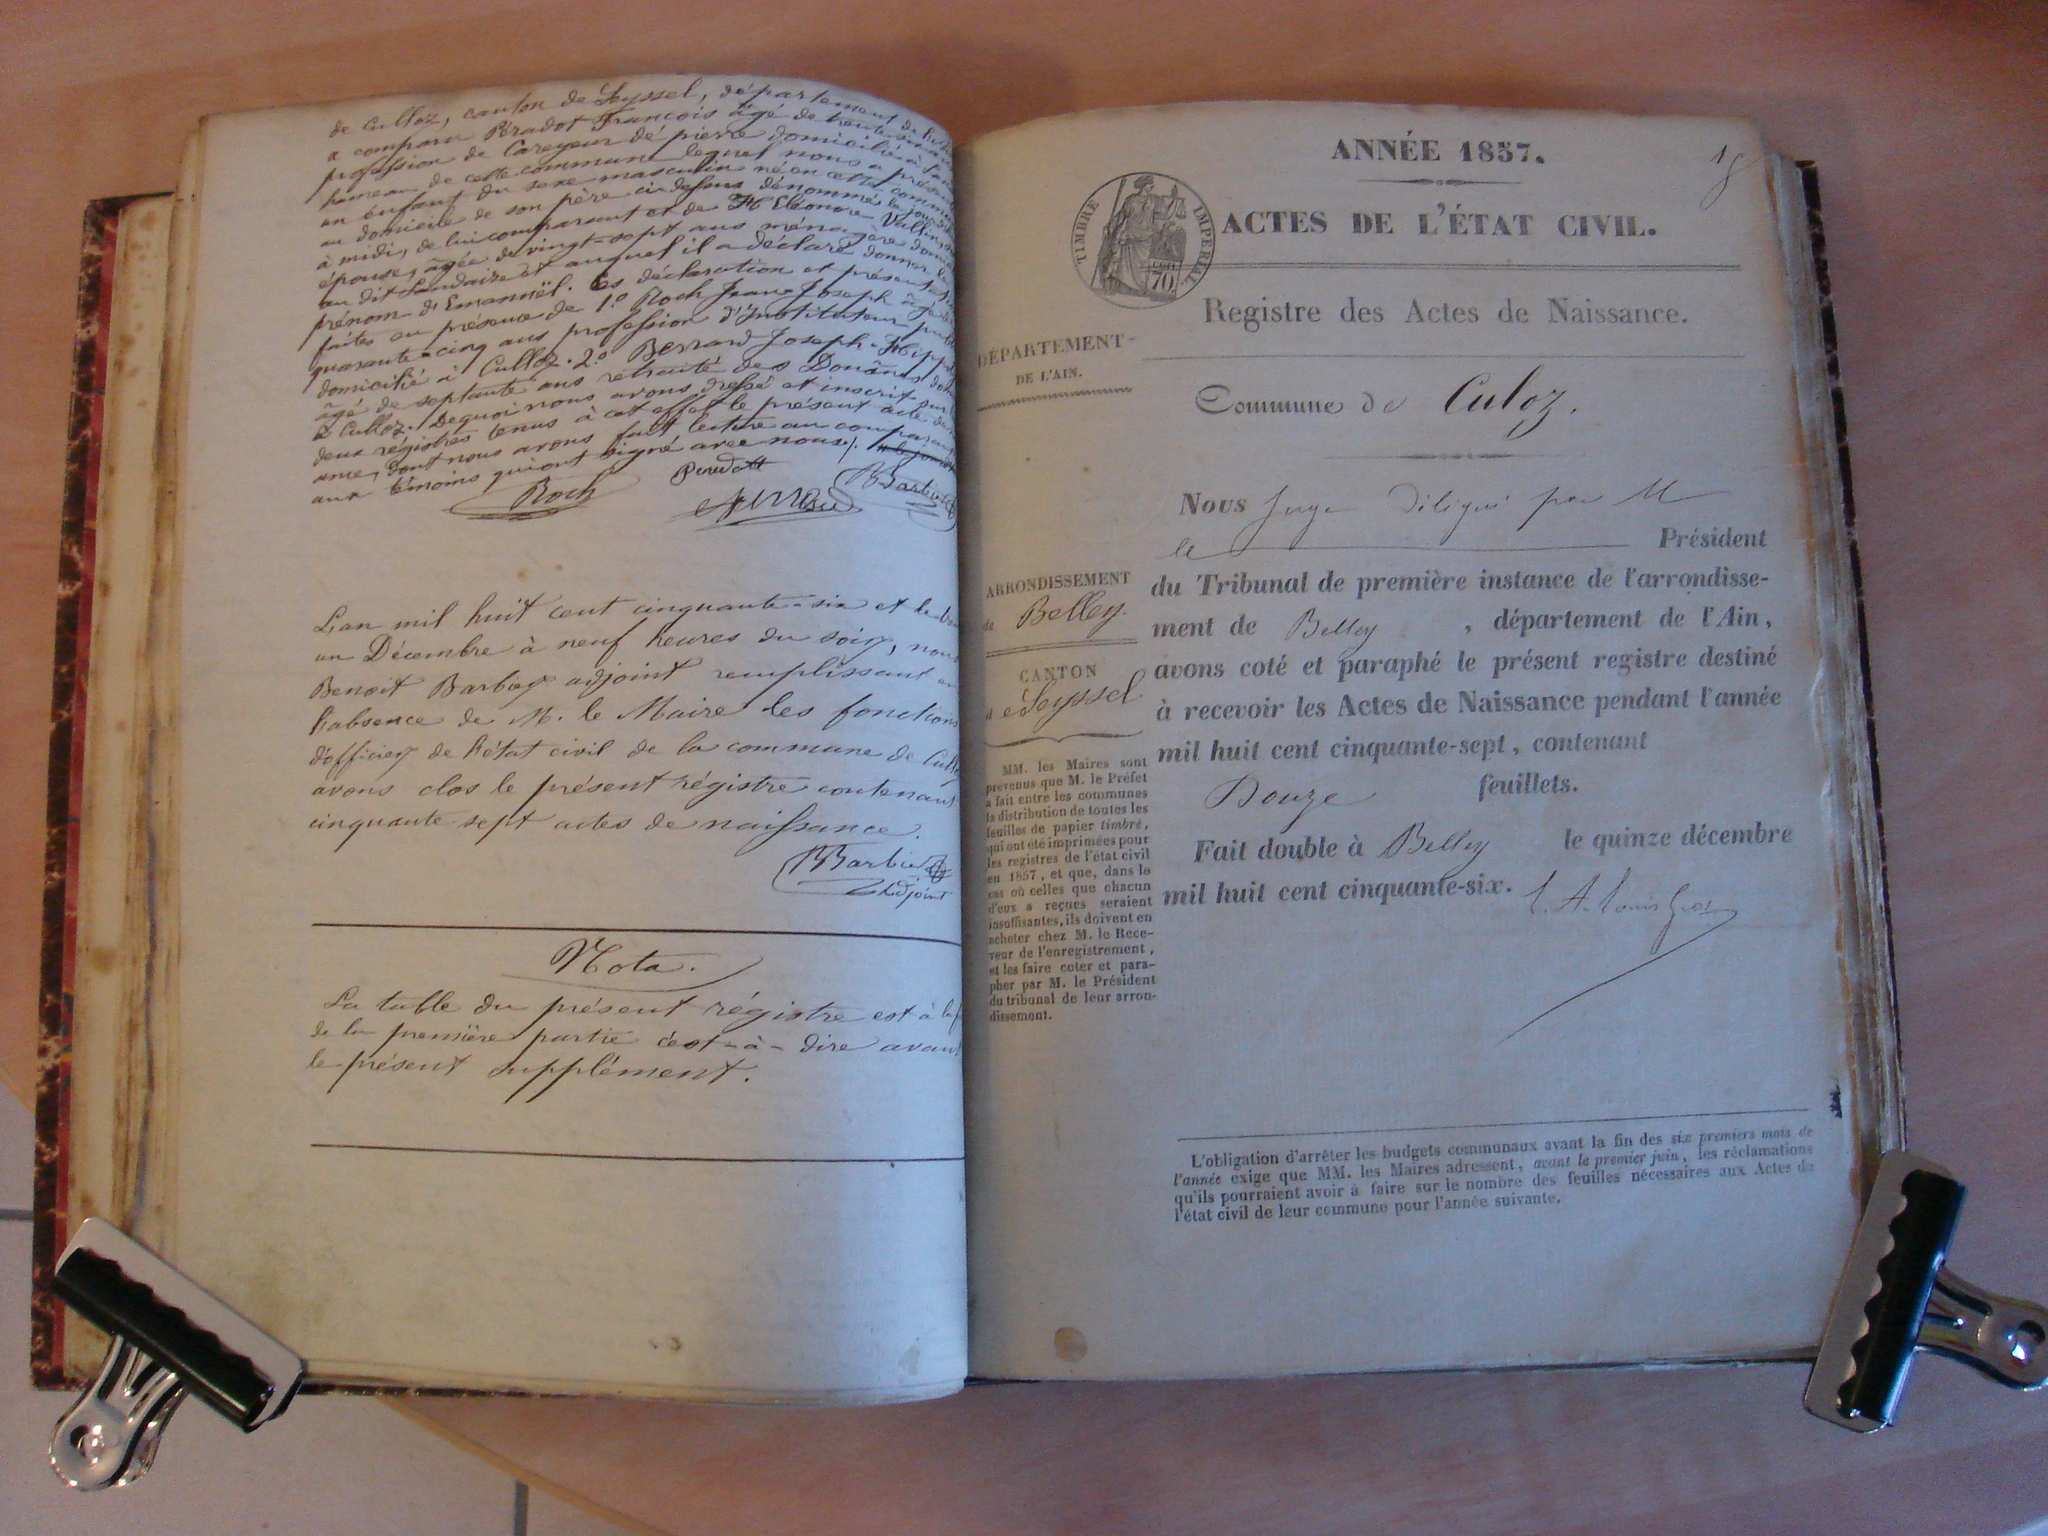 de Culloz, canton de Seyssel, département de
a comparu Péradot François âgé de trente
profession de Careyeur de pierre domicilié à
hameau de cette commune lequel nous a présenté
un enfant du sexe masculin né en cette commune
au domicile de son père ci-dessus dénommé
à midi, de lui comparant et de Eléonore Vullin
épouse, âgée de vingt-sept ans ménagère
au dit Landaize et auquel il a déclaré donner le
prénom d'Emanuël. Ces déclaration et
faites en présence de 1.º Roch Jean Joseph âgé de
quarante-cinq ans profession d'Instituteur
domicilié à Culloz. 2.º Berrard Joseph-
âgé de septante ans retraité des Douânes
à Culloz. Dequoi nous avons dressé et inscrit sur
deux régistres tenus à cet effet le présent acte de
ance, dont nous avons fait lecture au comparant
aux témoins qui ont signé avec nous.
Roch
BBarbier
L'an mil huit cent cinquante-six et le
un Décembre à neuf heures du soir, nous
Benoit Barbier adjoint remplissant en
l'absence de M. le Maire les fonctions
d'officier de l'état civil de la commune de Culloz
avons clos le présent régistre contenant
cinquante sept actes de naissance.
BBarbier
Adjoint
Nota.
La table du présent régistre est à la
de la première partie c'est-à-dire avant
le présent supplément.
18
ANNÉE 1857.
TIMBRE IMPERIAL
70
ACTES DE L'ÉTAT CIVIL.
Registre des Actes de Naissance.
DÉPARTEMENT
DE L'AIN.
Commune de Culoz.
Nous Juge délégué par M
le Président
du Tribunal de première instance de l'arrondisse-
ment de Belley, département de l'Ain,
avons coté et paraphé le présent registre destiné
à recevoir les Actes de Naissance pendant l'année
mil huit cent cinquante-sept, contenant
Douze feuillets.
Fait double à Belley le quinze décembre
mil huit cent cinquante-six.
ARRONDISSEMENT
de Belley.
CANTON
de Seyssel
MM. les Maires sont
prévenus que M. le Préfet
a fait entre les communes
la distribution de toutes les
feuilles de papier timbré,
qui ont été imprimées pour
les registres de l'état civil
en 1857, et que, dans le
cas où celles que chacun
d'eux a reçues seraient
insuffisantes, ils doivent en
acheter chez M. le Rece-
veur de l'enregistrement,
et les faire coter et para-
pher par M. le Président
du tribunal de leur arron-
dissement.
L'obligation d'arrêter les budgets communaux avant la fin des six premiers mois de
l'année exige que MM. les Maires adressent, avant le premier juin, les réclamations
qu'ils pourraient avoir à faire sur le nombre des feuilles nécessaires aux Actes de
l'état civil de leur commune pour l'année suivante.